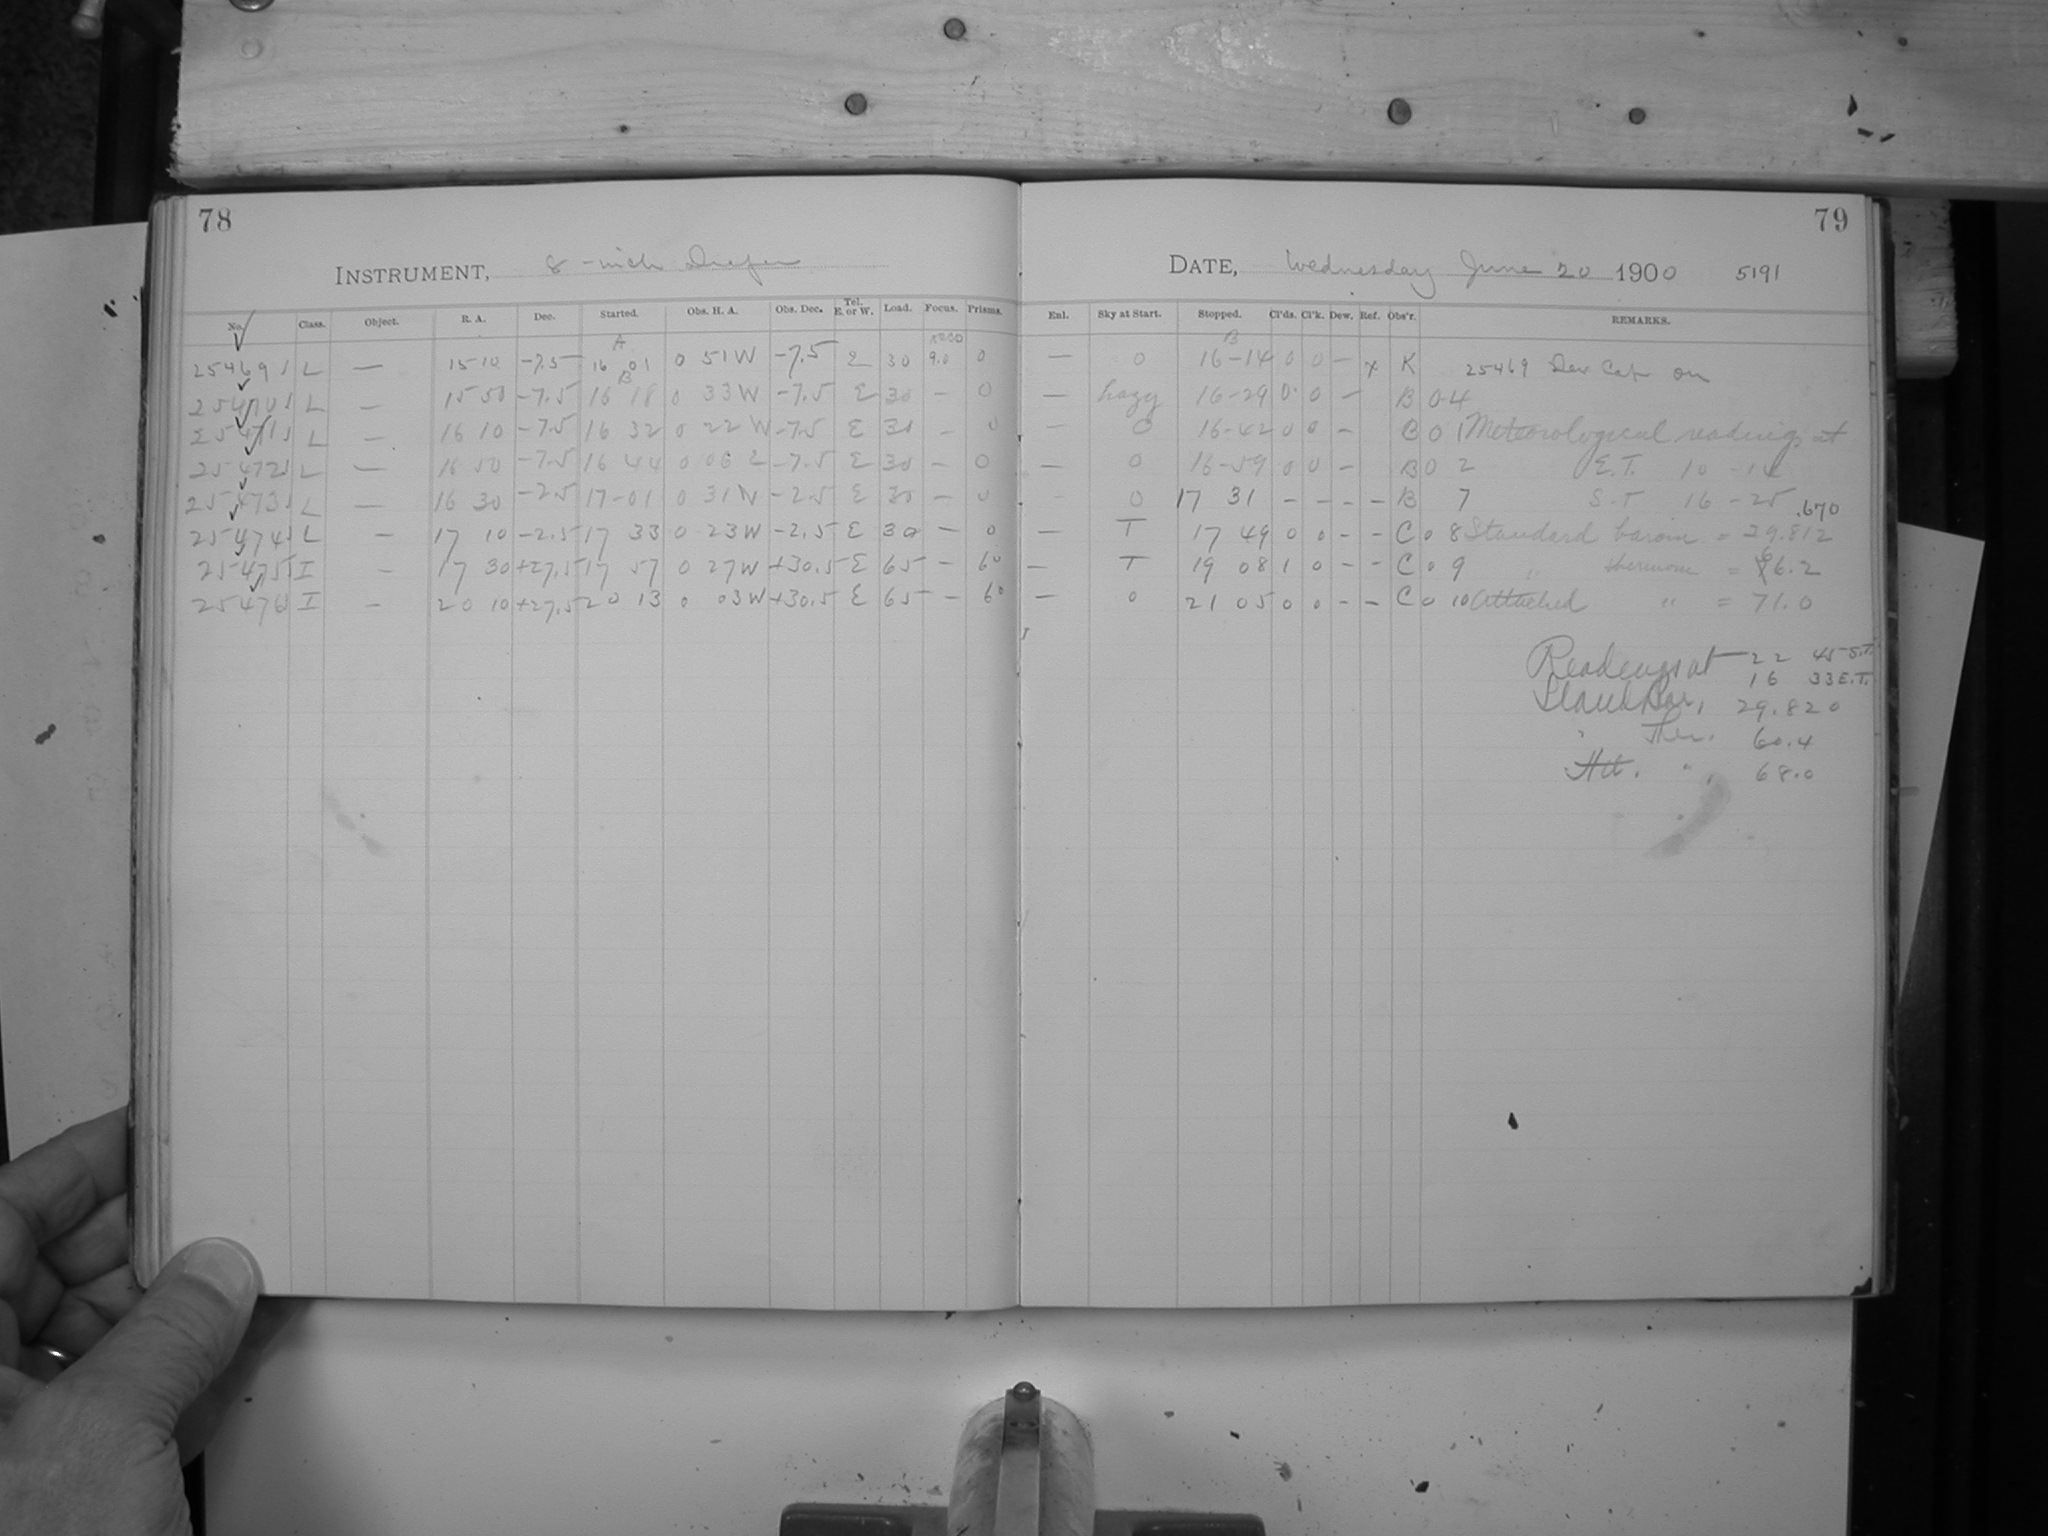 78
79
INSTRUMENT, 8-inch Draper
DATE, Wednesday June 20 1900 5191
No. Class. Object. R. A. Dec. Started. Obs. H. A. Obs. Dec. Tel. E. or W. Load. Focus. Prisms. Enl. Sky at Start. Stopped. Cl'ds. Cl'k. Dew. Ref. Obs'r. REMARKS.
A B
25469 L — 15 10 -7.5 16 01 0 51 W -7.5 E 30 9.0 0 — 0 16-14 0 0 — x K 25469 Dew Cap on
B
25470 L — 15 50 -7.5 16 18 0 33 W -7.5 E 30 — 0 — hazy 16-29 0 0 — B 0 4
25471 L — 16 10 -7.5 16 32 0 22 W -7.5 E 30 — 0 — 0 16-42 0 0 — B 0 1 Meteorological readings at
25472 L — 16 50 -7.5 16 44 0 06 E -7.5 E 30 — 0 — 0 16-59 0 0 — B 0 2 E.T. 10 -14
25473 L — 16 30 -2.5 17-01 0 31 W -2.5 E 30 — 0 - 0 17 31 - - - - B 7 S.T 16 - 25
.670
25474 L — 17 10 -2.5 17 33 0 23 W -2.5 E 30 — 0 — T 17 49 0 0 - - C 0 8 Standard barom = 29.812
25475 I — 17 30 +27.5 17 57 0 27 W +30.5 E 65 — 60 — T 19 08 1 0 - - C 0 9 " thermom = 66.2
25476 I — 20 10 +27.5 20 13 0 03 W +30.5 E 65 — 60 — 0 21 05 0 0 - - C 0 10 Attached " = 71.0
Readings at — 22 45 S.T.
16 33 E.T.
Stand Bar, 29.820
" Ther. 60.4
Att. " , 68.0